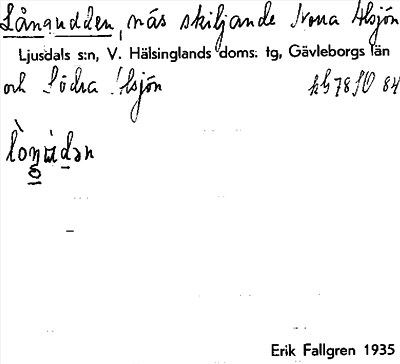 Långudden, näs skiljande Norra Alsjön
Ljusdals s:n, V. Hälsinglands doms. tg, Gävleborgs län
och Södra Alsjön
Erik Fallgren 1935